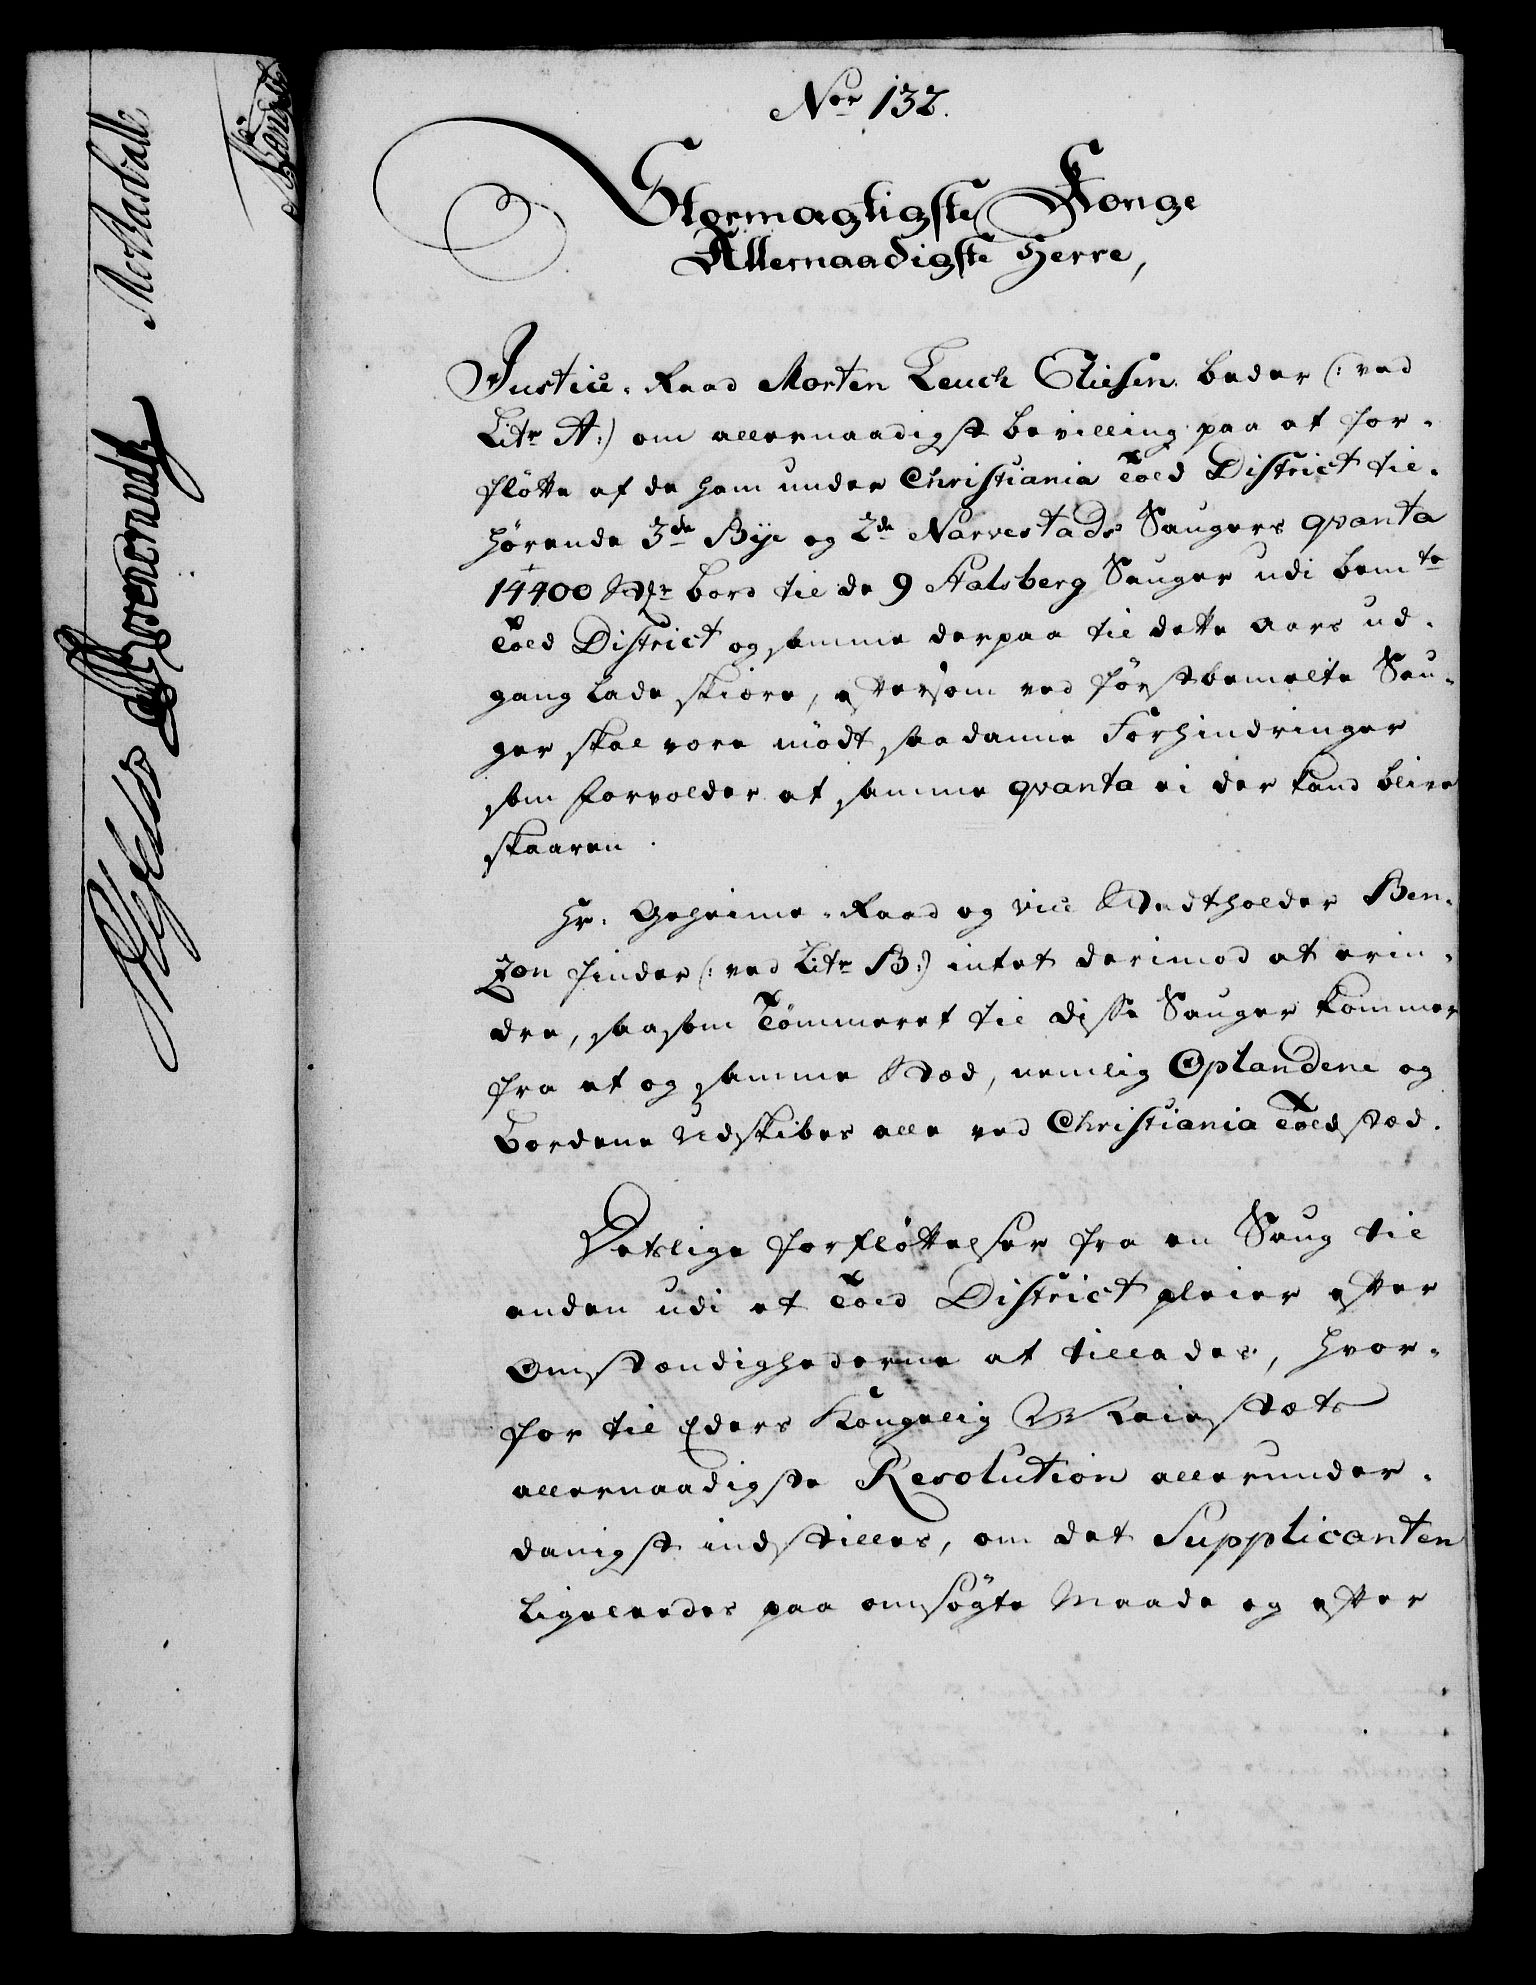 Nor 132.
Stormægtigste Konge
Allernaadigste Herre,
Justice-Raad Morten Leuch Eliesen beder (: ved
Litr A:) om allernaadigst bevilling paa at for-
fløtte af de ham under Christiania Told District til-
hørende 3de Bye og 2de Narvestads Saugers qvanta
14400 bord til de 9 Stalsberg Sauger udi bemte
Told District og samme derpaa til dette aars ud-
gang lade skiære, eftersom ved førstbemelte Sau-
ger skal være mødt saadanne Forhindringer
som forvolder at samme qvanta ei der kand blive
skaaren.
Hr. Geheime-Raad og vice Stadtholder Ben-
zon finder (: ved Litr B:) intet derimod at erin-
dre, saasom Tømmeret til disse Sauger kommer
fra et og samme Stæd, nemlig Oplandene og
Bordene udskibes alle ved Christiania Toldstæd.
Detslige forfløttelser fra en Saug til
anden udi et Told District pleier efter
Omstændighederne at tillades, hvor-
for til Eders Kongelig Maiestæts
allernaadigste Resolution allerunder-
danigst indstilles, om det Supplicanten
ligeleedes paa omsøgte Maade og efter